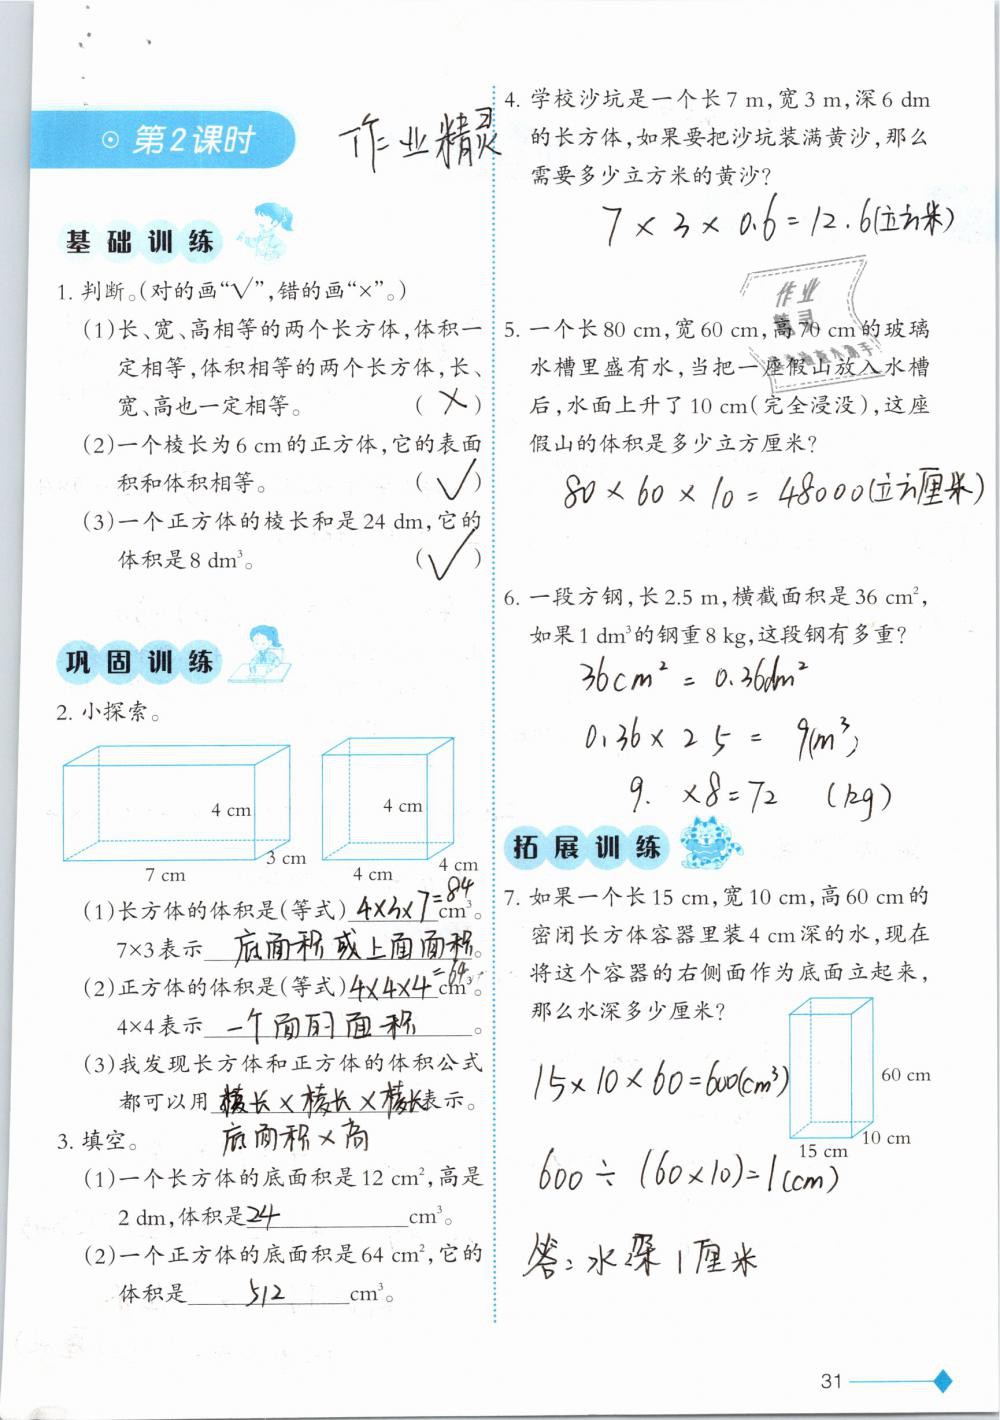 第2课时
作业精灵
基础训练
1. 判断。(对的画“√”,错的画“×”。)
(1)长、宽、高相等的两个长方体,体积一
定相等,体积相等的两个长方体,长、
宽、高也一定相等。 ( × )
(2)一个棱长为6 cm的正方体,它的表面
积和体积相等。 ( √ )
(3)一个正方体的棱长和是24 dm,它的
体积是8 dm³。 ( √ )
巩固训练
2. 小探索。
4 cm
3 cm
7 cm
4 cm
4 cm
4 cm
(1)长方体的体积是(等式) 4×3×7=84 cm³。
7×3表示 底面积或上面面积。
(2)正方体的体积是(等式) 4×4×4=64 cm³。
4×4表示 一个面的面积 。
(3)我发现长方体和正方体的体积公式
都可以用 棱长×棱长×棱长 表示。
底面积×高
3. 填空。
(1)一个长方体的底面积是12 cm²,高是
2 dm,体积是 24 cm³。
(2)一个正方体的底面积是64 cm²,它的
体积是 512 cm³。
4. 学校沙坑是一个长7 m,宽3 m,深6 dm
的长方体,如果要把沙坑装满黄沙,那么
需要多少立方米的黄沙?
7×3×0.6=12.6(立方米)
作业
精灵
5. 一个长80 cm,宽60 cm,高70 cm的玻璃
水槽里盛有水,当把一座假山放入水槽
后,水面上升了10 cm(完全浸没),这座
假山的体积是多少立方厘米?
80×60×10=48000(立方厘米)
6. 一段方钢,长2.5 m,横截面积是36 cm²,
如果1 dm³的钢重8 kg,这段钢有多重?
36cm²=0.36dm²
0.36×25=9(m³)
9.×8=72 (kg)
拓展训练
7. 如果一个长15 cm,宽10 cm,高60 cm的
密闭长方体容器里装4 cm深的水,现在
将这个容器的右侧面作为底面立起来,
那么水深多少厘米?
60 cm
10 cm
15 cm
15×10×60=600(cm³)
600÷(60×10)=1(cm)
答:水深1厘米
31